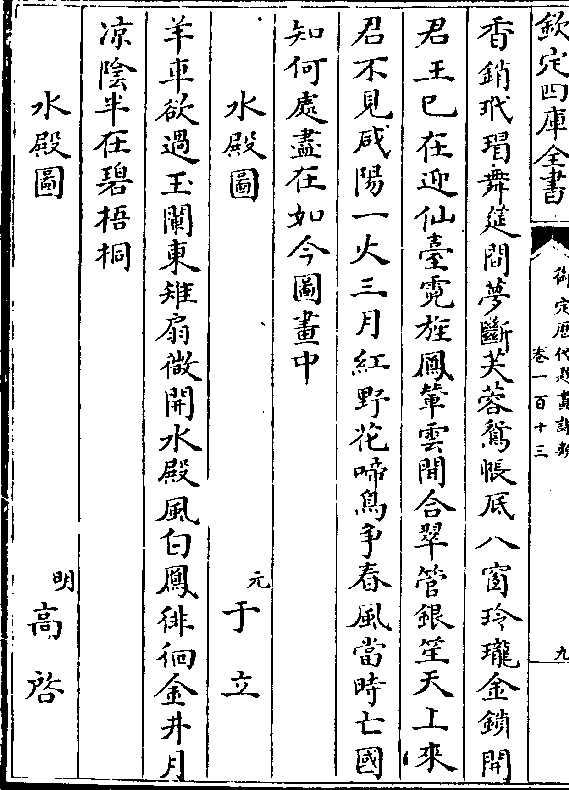 欽定四庫全書
御定歴代題畫詩類
卷一百十三
九
香銷玳瑁舞筵間夢斷芙蓉鴛帳底八窗玲瓏金鎖開
君王已在迎仙臺霓旌鳳輦雲間合翠管銀笙天上來
君不見咸陽一火三月紅野花啼鳥争春風當時亡國
知何處盡在如今圖畫中
水殿圖
元
于立
羊車欲過玉闌東雉扇微開水殿風白鳳徘徊金井月
凉陰半在碧梧桐
水殿圖
明
高啓